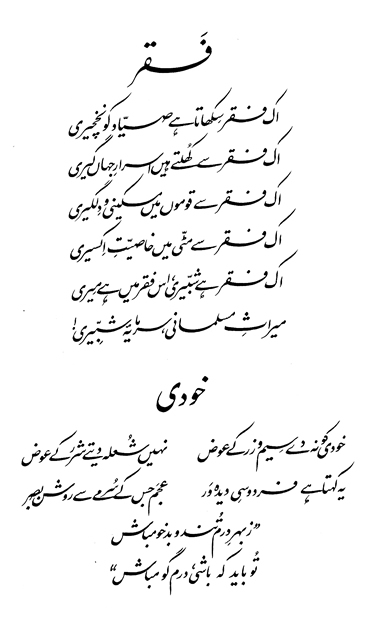 فَقر
اک فقر سکھاتا ہے صیّاد کو نخچیری
اک فقر سے کھُلتے ہیں اسرارِ جہاں گیری
اک فقر سے قوموں میں مسکینی و دلگیری
اک فقر سے مٹّی میں خاصیّتِ اکسیری
اک فقر ہے شبّیری، اس فقر میں ہے میری
میراثِ مسلمانی، سرمایۂ شبّیری!
خودی
خودی کو نہ دے سیم و زر کے عوض نہیں شعلہ دیتے شرر کے عوض
یہ کہتا ہے فردوسیِ دیدہ وَر عجم جس کے سُرمے سے روشن بصر
”ز بہرِ درم تُند و بدخو مباش
تُو باید کہ باشی، درم گو مباش“